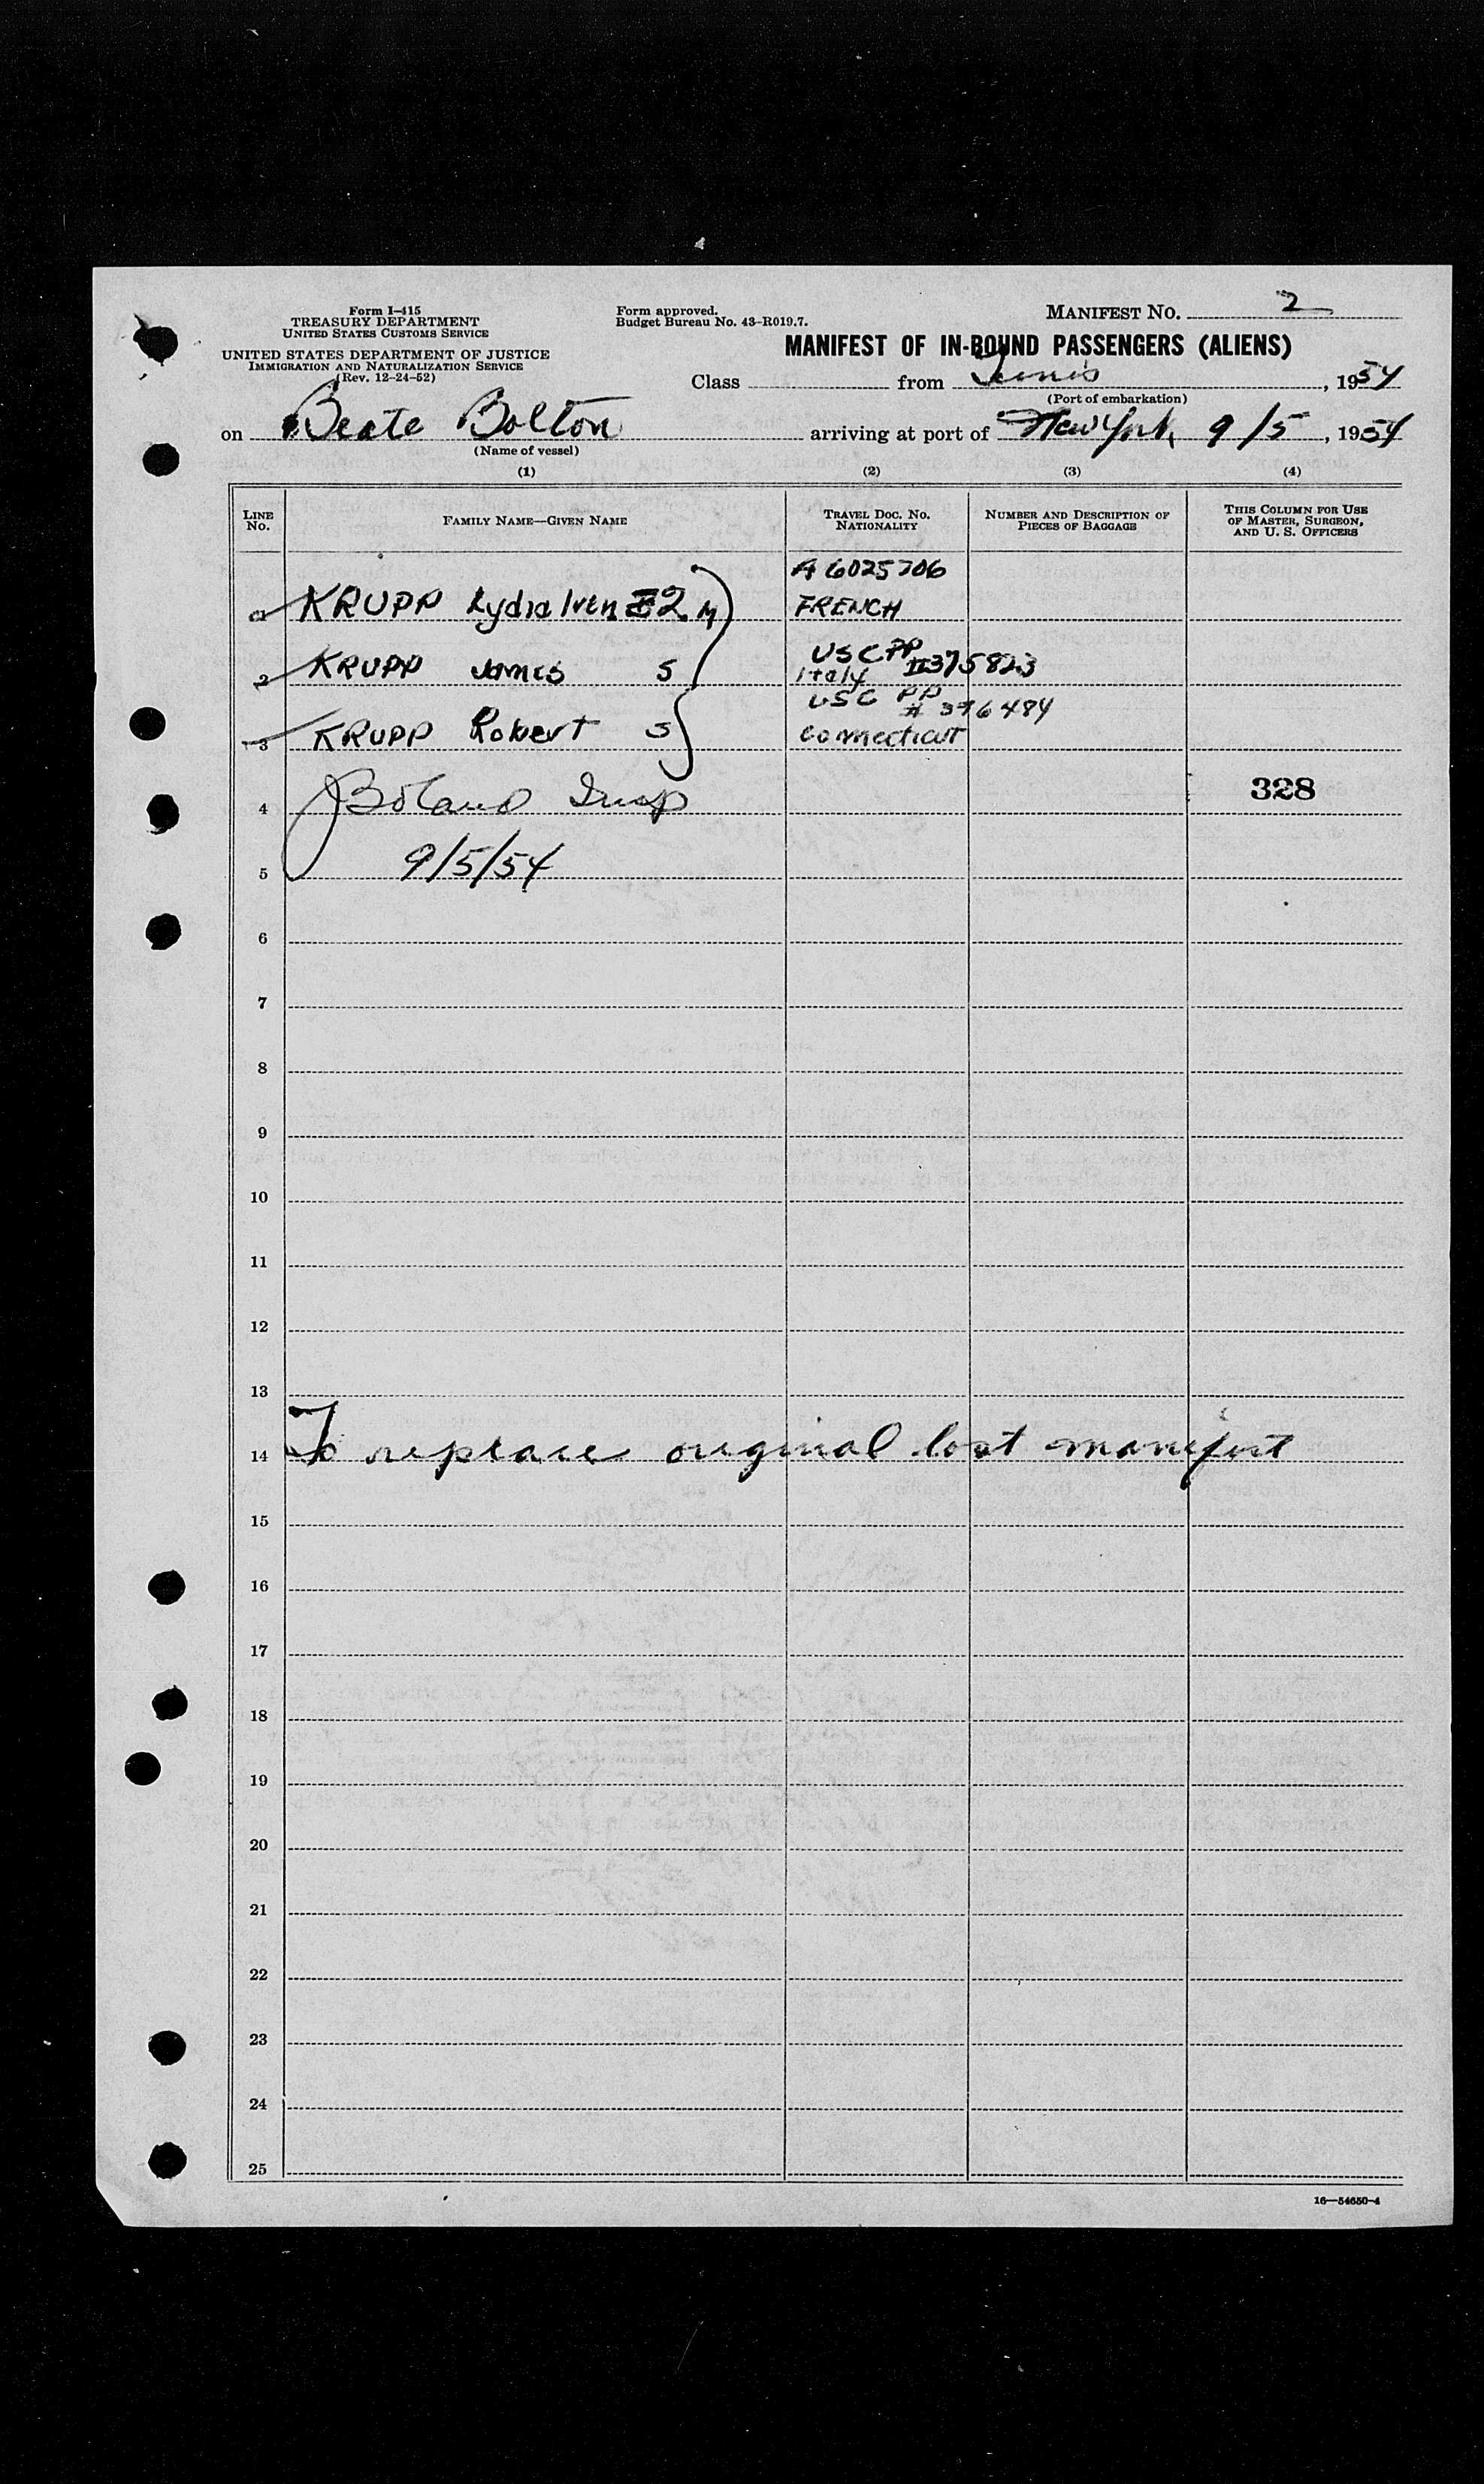 Form I-415
TREASURY DEPARTMENT
UNITED STATES CUSTOMS SERVICE
UNITED STATES DEPARTMENT OF JUSTICE
IMMIGRATION AND NATURALIZATION SERVICE
(Rev. 12-24-52)
Form approved.
Budget Bureau No. 43-R019.7.
MANIFEST NO. 2
MANIFEST OF IN-BOUND PASSENGERS (ALIENS)
Class from Tunis, 1954
(Port of embarkation)
on Beate Bolton arriving at port of New York 9/5, 1954
(Name of vessel)
(1) (2) (3) (4)
LINE NO. FAMILY NAME—GIVEN NAME TRAVEL DOC. NO. NATIONALITY NUMBER AND DESCRIPTION OF PIECES OF BAGGAGE THIS COLUMN FOR USE OF MASTER, SURGEON, AND U. S. OFFICERS
A 6025706
KRUPP Lydia M FRENCH
USC PP
2 KRUPP James S Italy 375823
USC PP
# 376484
3 KRUPP Robert S Connecticut
4 Boland Insp 328
5 9/5/54
6
7
8
9
10
11
12
13
14 To replace original lost manifest
15
16
17
18
19
20
21
22
23
24
25
16—54650-4